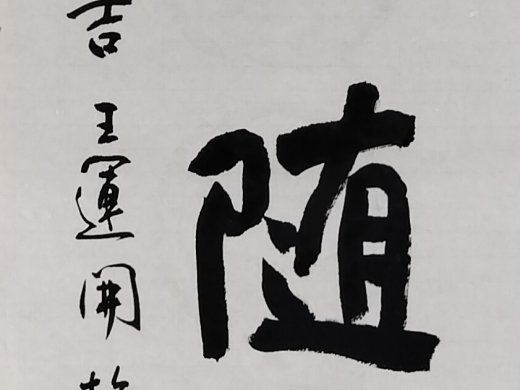 随
吉王運開